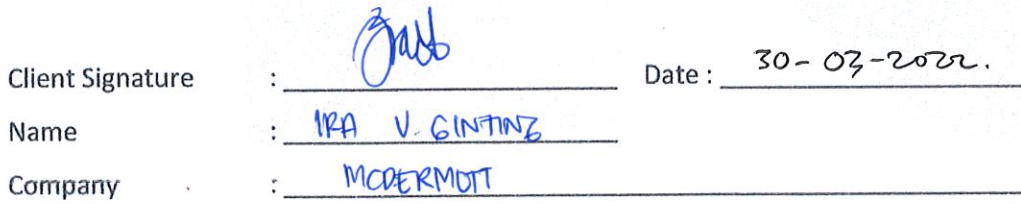 Client Signature : Date : 30-03-2022.
Name : IRA V. GINTING
Company : MCDERMOTT